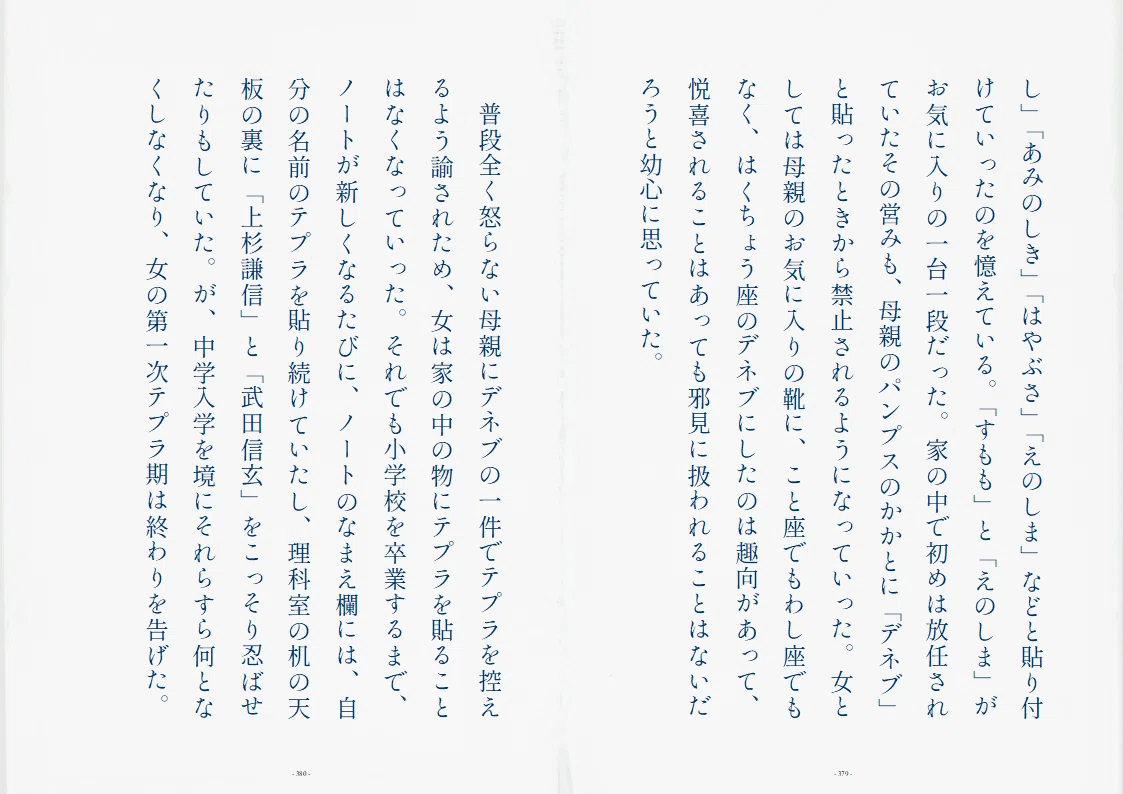 し」「あみのしき」「はやぶさ」「えのしま」などと貼り付
けていったのを憶えている。「すもも」と「えのしま」が
お気に入りの一台一段だった。家の中で初めは放任され
ていたその営みも、母親のパンプスのかかとに「デネブ」
と貼ったときから禁止されるようになっていった。女と
しては母親のお気に入りの靴に、こと座でもわし座でも
なく、はくちょう座のデネブにしたのは趣向があって、
悦喜されることはあっても邪見に扱われることはないだ
ろうと幼心に思っていた。
- 379 -
普段全く怒らない母親にデネブの一件でテプラを控え
るよう諭されため、女は家の中の物にテプラを貼ること
はなくなっていった。それでも小学校を卒業するまで、
ノートが新しくなるたびに、ノートのなまえ欄には、自
分の名前のテプラを貼り続けていたし、理科室の机の天
板の裏に「上杉謙信」と「武田信玄」をこっそり忍ばせ
たりもしていた。が、中学入学を境にそれらすら何とな
くしなくなり、女の第一次テプラ期は終わりを告げた。
- 380 -